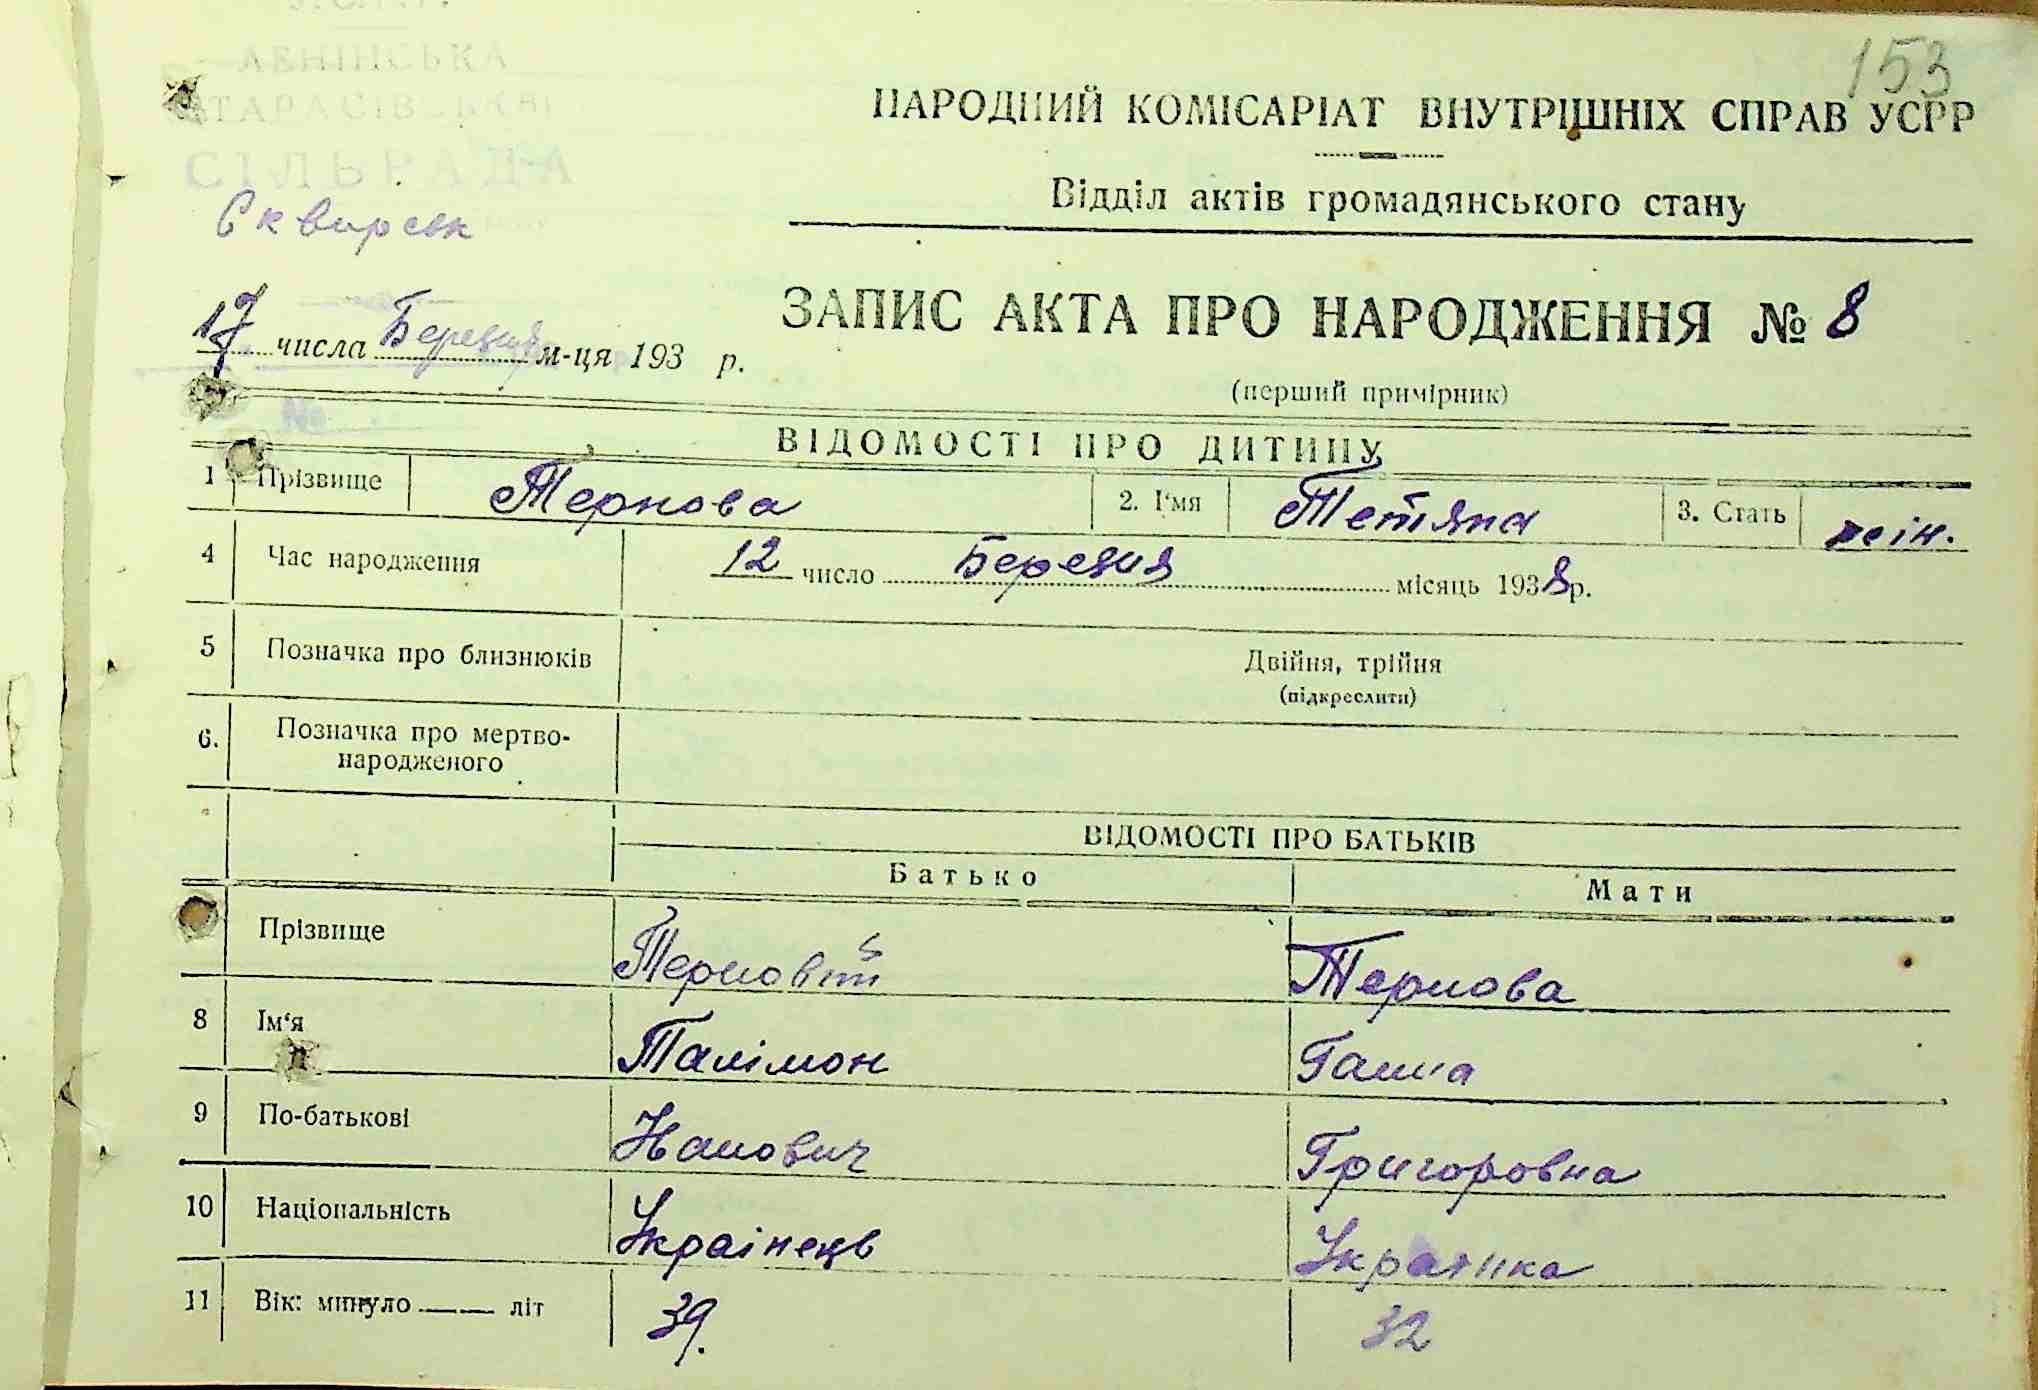 153
НАРОДНИЙ КОМІСАРІАТ ВНУТРІШНІХ СПРАВ УСРР
СІЛЬРАДА
Відділ актів громадянського стану
Сквирськ
ЗАПИС АКТА ПРО НАРОДЖЕННЯ № 8
17 числа Березня м-ця 193 р.
(перший примірник)
№
ВІДОМОСТІ ПРО ДИТИНУ
1 Прізвище Тернова 2. І'мя Тетяна 3. Стать жін.
4 Час народження 12 число Березня місяць 1938 р.
5 Позначка про близнюків Двійня, трійня
(підкреслити)
6. Позначка про мертво-
народженого
ВІДОМОСТІ ПРО БАТЬКІВ
Батько Мати
Прізвище Терновий Тернова
8 Ім'я Талімон Ганна
9 По-батькові Іванович Григоровна
10 Національність Українець Українка
11 Вік: минуло ___ літ 39. 32